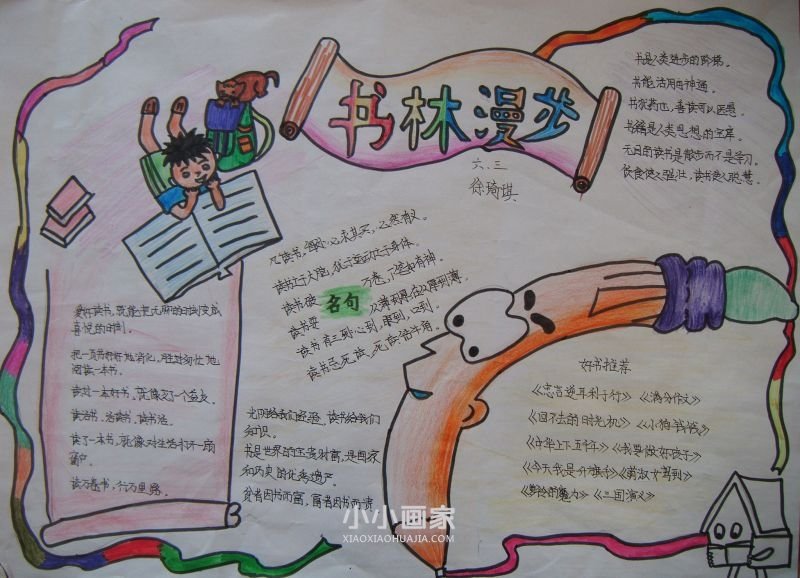 书林漫步
六.三
徐琦琪
书是人类进步的阶梯。
书能活用再神通。
书犹药也,善读可以医愚。
书籍是人类思想的宝库。
无目的读书是散步而不是学习。
饮食使人强壮,读书使人聪慧。
凡读书,
读书之于大脑,犹于运动之于身体。
读书破万卷,下笔如有神。
读书要从薄到厚再从厚到薄。
名句
读书有三到:心到,眼到,口到。
读书忌死读,死读钻牛角。
爱好读书,就能把无聊的时刻变成
喜悦的时刻。
把一页书好好地消化,胜过匆忙地
阅读一本书。
读过一本好书,就像交了一个益友。
读活书,活读书,读书活。
读了一本书,就像对生活打开一扇
窗户。
读万卷书,行万里路。
读书给我们
知识。
书是世界的宝贵财富,是国家
和历史的优秀遗产。
贫者因书而富,富者因书而贵
好书推荐
《忠言逆耳利于行》《满分作文》
《回不去的时光机》《小狗钱钱》
《中华上下五千年》《我要做好孩子》
《今天我是升旗手》《蔺汝女驾到》
《三国演义》
小小画家
XIAOXIAOHUAJIA.COM